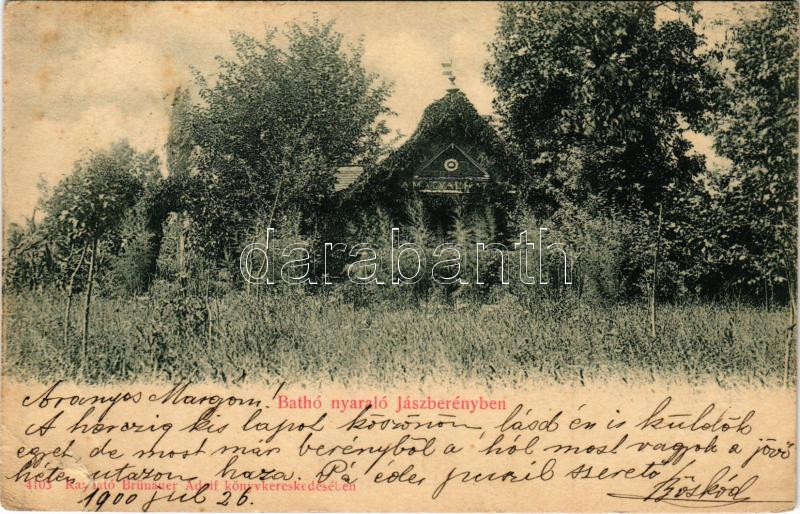 darabanth
Aranyos Margom!
Bathó nyaraló Jászberényben
A herczig kis lapot köszönöm, lásd én is küldök
egyet, de most már berényből a hól most vagyok a jövő
héten utazom haza. Pá édes puszil szerető
4103 Kapható Brünauer Adolf könyvkereskedésében
1900 Jul 26.